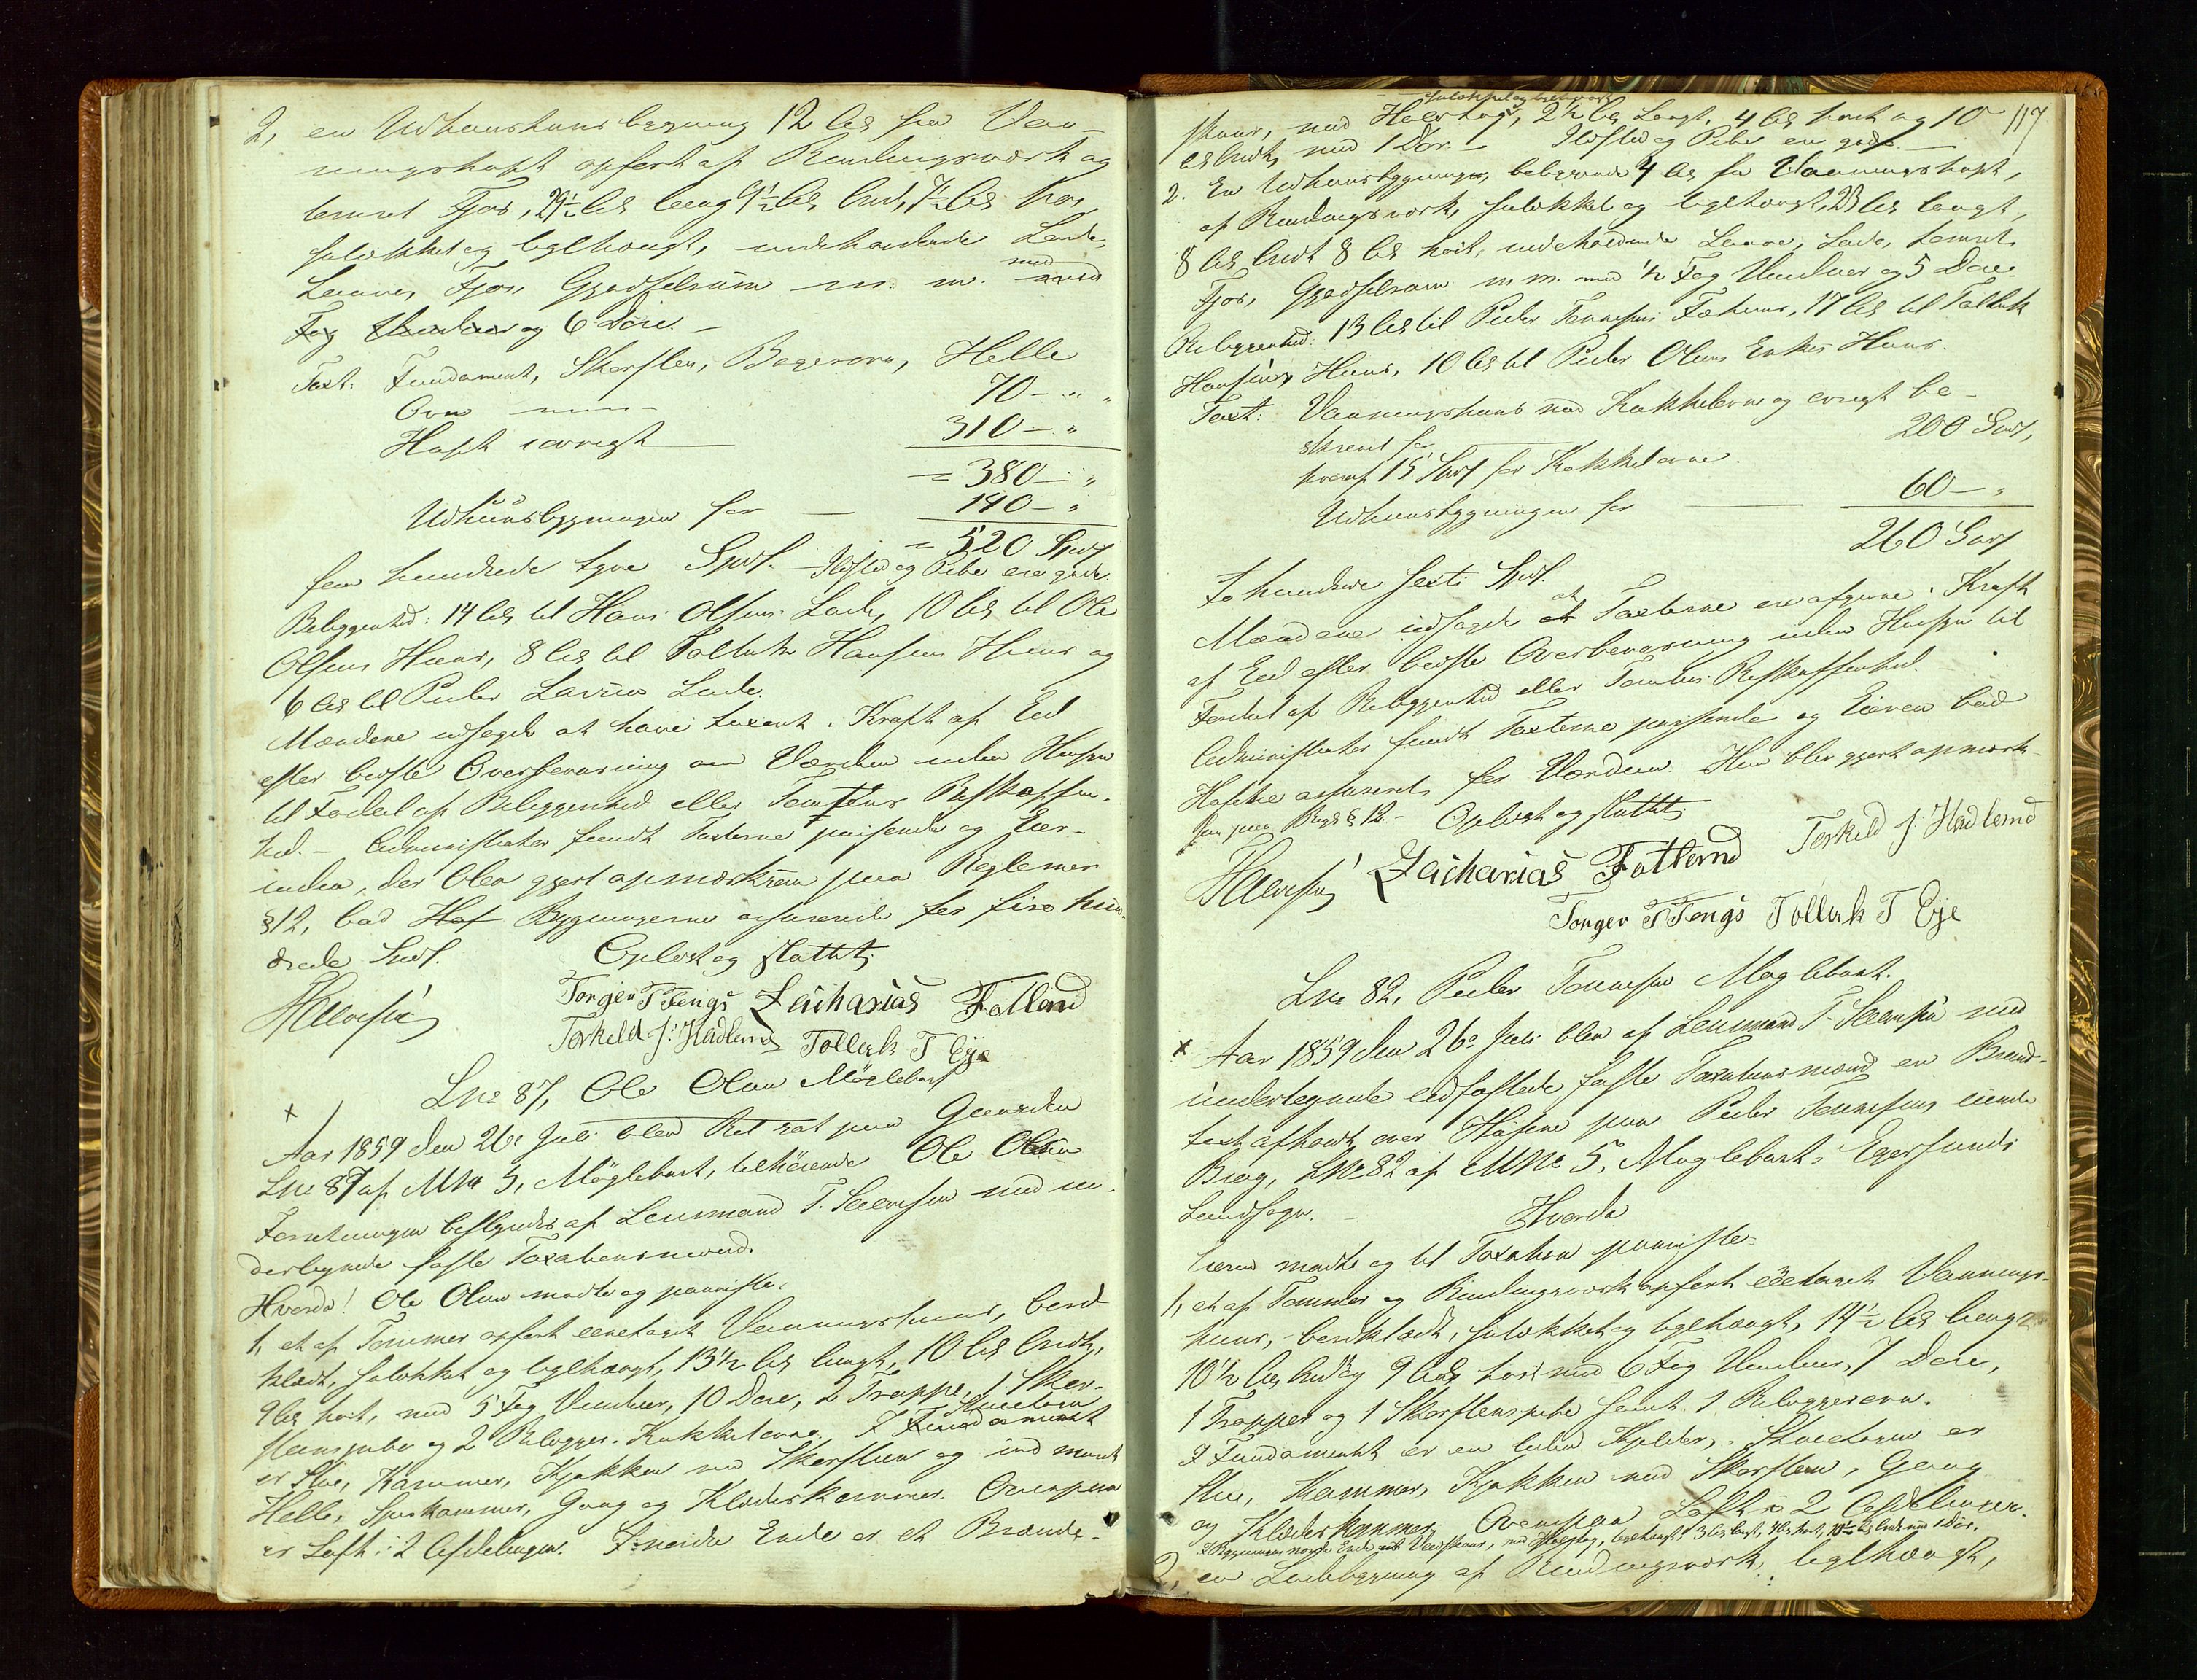 2, en Udhuusbygning 12 Al. fra Vaa-
ningshuset opført af Bindingsværk og
tømret Fjøs, 29½ Al. lang 9½ Al. bred, 7½ Al. høi,
sulækket og teglhængt, indeholdende Lade,
Laave, Fjøs, Gjødselrum m. m. med
Fag Vinduer og 6 Døre. —
Taxt: Fundament, Skorsten, Bagerovn, Helle
Ovn 70 — " "
Huset iøvrigt — 310 — "
= 380 — "
Udhuusbygningen for — 140 — "
= 520 Spd
fem hundrede tyve Spd. — Ildsted og Pibe ere gode.
Beliggenhed: 14 Al. til Hans Olsens Lade, 10 Al. til Ole
Olsens Huus, 8 Al. til Tollak Hansens Huus og
6 Al. til Peder Larsens Lade.
Mændene udsagde at have taxeret i Kraft af Eed
efter bedste Overbeviisning om Værdien uden Hensyn
til Fordel af Beliggenhed eller Tomtens Beskaffen-
hed. — Administrator fandt Taxterne passende og Eier-
inden, der blev gjort opmærksom paa Reglemen
§ 12, bad Bygningerne assurerede for fire hun-
drede Spd. Oplæst og sluttet.
Torger P Tengs Zacharias Fotland
Torkeld J: Hadland Tollak T Eje
Lno 87, Ole Olsen Møglebust
x Aar 1859 den 26e Juli blev Ret sat paa Gaarden
Lno 87 af MNo 5, Møglebust, tilhørende Ole Olsen
Forretningen bestyredes af Lensmand T. med un-
dertegnede faste Taxationsmænd.
Hvorda! Ole Olsen mødte og paaviste.
1, et af Tømmer opført eenetages Vaaningshuus, bord-
klædt, sulækket og teglhængt, 13½ Al. langt, 10 Al. bredt,
9 Al. høit, med 5 Fag Vinduer, 10 Døre, 2 Trapper, 1 Skor-
steenspibe og 2 Bilegger-Kakkelovne. I Stueetagen Fundament
er Stue, Kammer, Kjøkken med Skorsteen og ind muret
Helle, Spiskammer, Gang og Klædeskammer. Ovenpaa
er Loft i 2 Afdelinger. I nordre Ende er et Brænde-
117
sulækket og bordklædt
skuur, med Halvtag, 2½ Al. langt, 4 Al. høit og 10
Al. bredt, med 1 Dør. — Ildsted og Pibe ere gode. —
2. En Udhuusbygning, beliggende 4 Al. fra Vaaningshuset,
af Bindingsværk, sulækket og teglhængt, 23 Al. langt,
8 Al. bredt 8 Al. høit, indeholdende Laave, Lade, tømret
Fjøs, Gjødselrum m. m. med ½ Fag Vinduer og 5 Døre.
Beliggenhed: 13 Al. til Peder Tønnesens Fæhuus, 17 Al. til Tollak
Hansens Huus, 10 Al. til Peder Olsens Enkes Huus.
Taxt: Vaaningshuus med Kakkelovne og øvrigt be-
skrevet for 200 Spd,
hvoraf 15 Spd for Kakkelovne.
Udhuusbygningen for — 60 — "
260 Spd
to hundrede sexti Spd.
Mændene udsagde at Taxterne ere afgivne i Kraft
af Eed efter bedste Overbeviisning uden Hensyn til
Fordeel af Beliggenhed eller Tomtens Beskaffenhed.
Administrator fandt Taxterne passende og Eieren bad
Husene assurerede for Værdien. Han blev gjort opmærk-
som paa Regl § 12. — Oplæst og sluttet.
Zacharias Fotland Torkeld J: Hadland
Torger P Tengs Tollak T Eje
Lno 82, Peder Tønnesen Møglebust.
x Aar 1859 den 26e Juli blev af Lensmand T. med
undertegnede eedfæstede faste Taxationsmænd en Brand-
taxt afholdt over Husene paa Peder Tønnesens eiende
Brug, LNo 82 af MNo 5, Møglebust, Egersunds
Landsogn. —
Hvorda
Eieren mødte og til Taxation paaviste:
1, et af Tømmer og Bindingsværk opført eenetages Vaanings-
huus, bordklædt, sulækket og teglhængt, 14½ Al. langt
10½ Al. bredt og 9 Al. høit med 6 Fag Vinduer, 7 Døre,
1 Trapper og 1 Skorsteenspibe samt 1 Bileggerovn.
I Fundamentet er en liden Kjelder, i Stueetagen er
Stue, Kammer, Kjøkken med Skorsteen, Gang
og Klædeskammer, Ovenpaa Loft i 2 Afdelinger.
I Bygningens nordre Ende et Vedskuur, med Halvtag, teglhængt, 3 Al. langt, 4 Al. høit, 10½ Al. bredt med 1 Dør.
2, en Ladebygning af Bindingsværk, teglhængt,